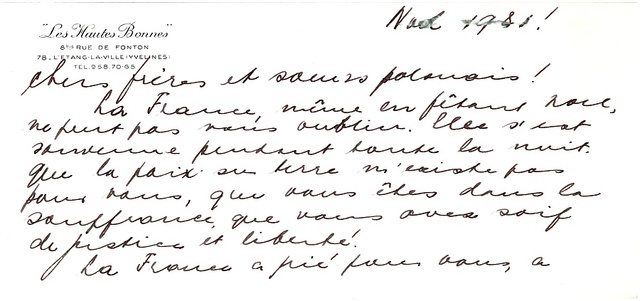 "Les Hautes Bonnes"
8bis RUE DE FONTON
78. L'ETANG-LA-VILLE (YVELINES)
TEL. 958.70-65
Noel 1981!
chers frères et sœurs polonais!
La France, même en fêtant Noel,
ne peut pas vous oublier. Elle s'est
souvenue pendant toute la nuit.
que la paix sur terre n'existe pas
pour vous, que vous êtes dans la
souffrance, que vous avez soif
de justice et liberté.
La France a prié pour vous, a